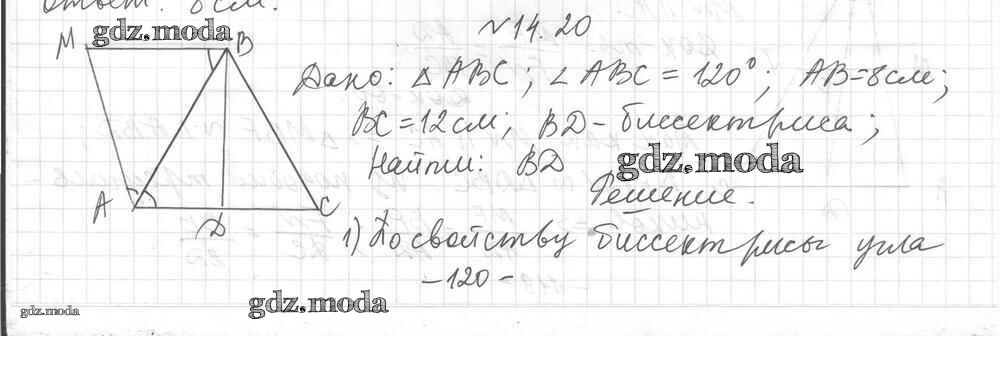 Ответ: 8 см.
№14.20
M
B
A
D
C
Дано: △ABC; ∠ABC = 120°; AB=8см;
BC=12см; BD-биссектриса;
Найти: BD
Решение.
1) По свойству биссектрисы угла
-120-
gdz.moda
gdz.moda
gdz.moda
gdz.moda